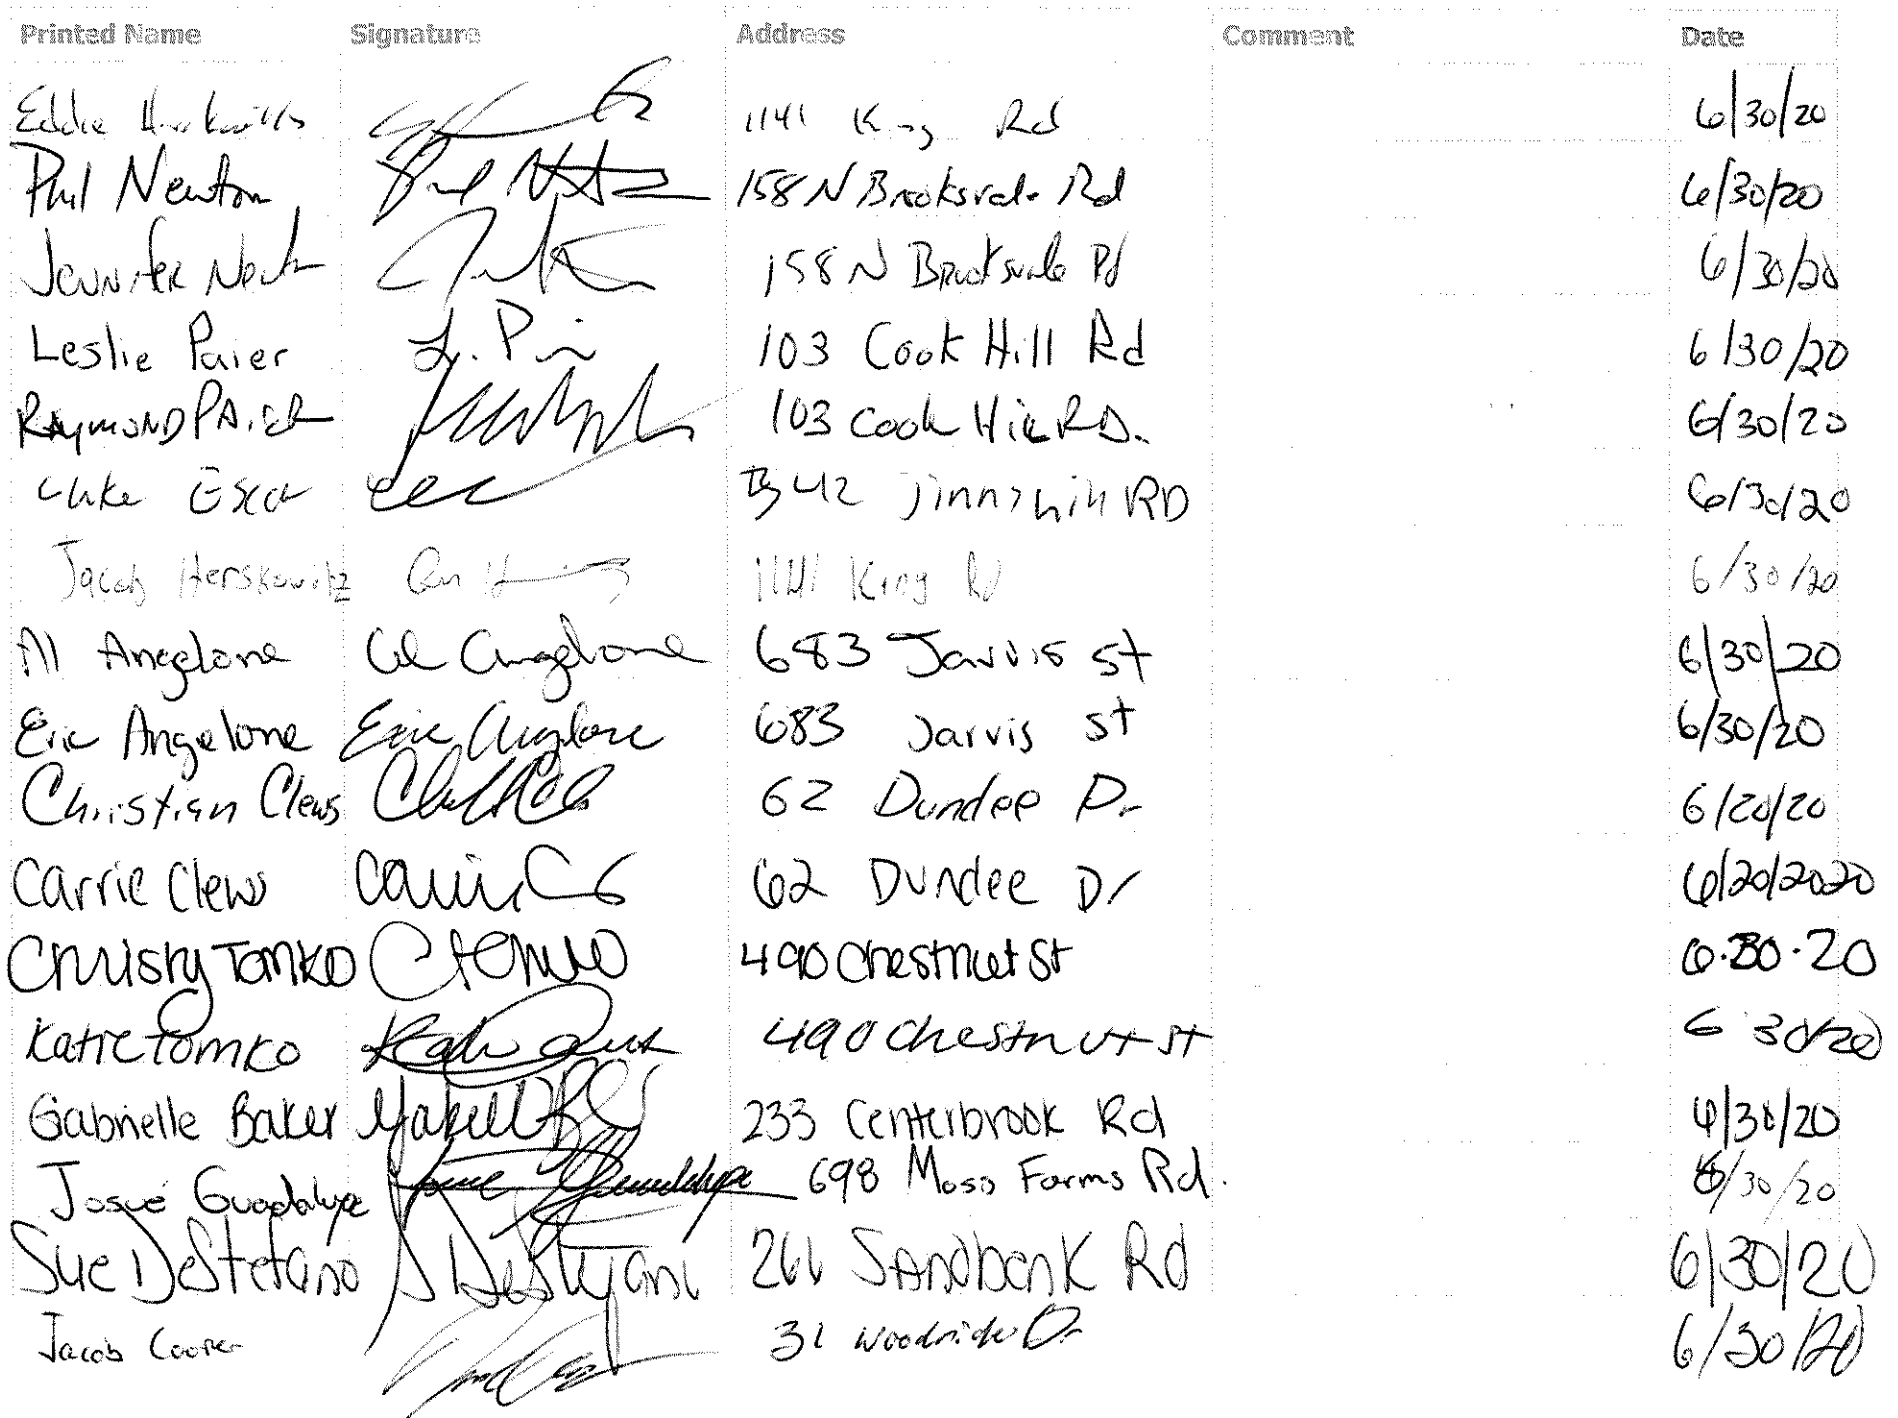 Printed Name Signature Address Comment Date
Eddie 1141 King Rd 6/30/20
Phil Newton Phil 158 N Brooksvale Rd 6/30/20
Jennifer 158 N Brooksvale Rd 6/30/20
Leslie Paier L. P 103 Cook Hill Rd 6/30/20
RAYMOND PAIER 103 Cook Hill RD. 6/30/20
Luke 42 RD 6/30/20
Jacob Herskowitz 1141 King Rd 6/30/20
Al Angelone Al Angelone 683 Jarvis St 6/30/20
Eric Angelone Eric Angelone 683 Jarvis St 6/30/20
Christian Clews 62 Dundee Dr 6/20/20
Carrie Clews Carrie C 62 Dundee Dr 6/20/2020
Christy Tomko C Tomko 490 Chestnut St 6.30.20
Katie Tomko Katie 490 Chestnut St 6 30/20
Gabrielle Baker 233 Centerbrook Rd 6/30/20
Josué Guadalupe Josue Guadalupe 698 Moss Farms Rd. 6/30/20
Sue DeStefano S DeStefano 266 Sandbank Rd 6/30/20
Jacob Cooper 31 Woodridge Dr 6/30/20